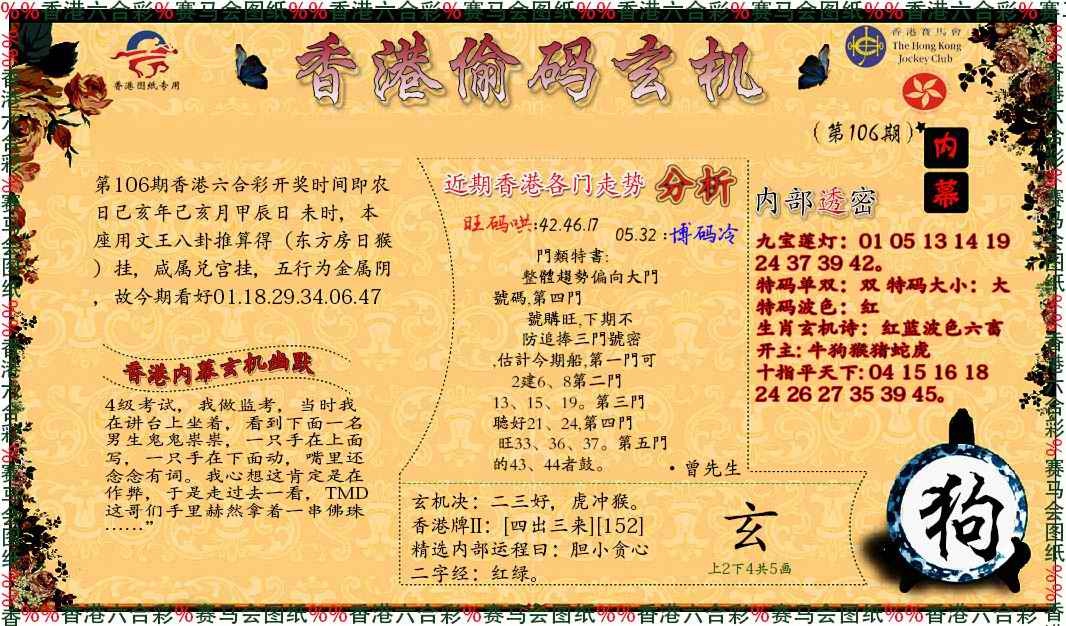 %%香港六合彩%赛马会图纸%%香港六合彩%赛马会图纸%%香港六合彩%赛马会图纸%%香港六合彩%赛
香港图纸专用
香港偷码玄机
香港賽馬會
The Hong Kong
Jockey Club
(第106期)
内幕
第106期香港六合彩开奖时间即农
日己亥年己亥月甲辰日 未时，本
座用文王八卦推算得（东方房日猴
）挂，咸属兑宫挂，五行为金属阴
，故今期看好01.18.29.34.06.47
香港内幕玄机幽默
4级考试，我做监考，当时我
在讲台上坐着，看到下面一名
男生鬼鬼祟祟，一只手在上面
写，一只手在下面动，嘴里还
念念有词。我心想这肯定是在
作弊，于是走过去一看，TMD
这哥们手里赫然拿着一串佛珠
……”
近期香港各门走势 分析
旺码哄:42.46.17
05.32 :博码冷
門類特書:
整體趨勢偏向大門
號碼,第四門
號購旺,下期不
防追捧三門號密
,估計今期船,第一門可
2建6、8第二門
13、15、19。第三門
聽好21、24,第四門
旺33、36、37。第五門
的43、44者鼓。
·曾先生
玄机决：二三好，虎冲猴。
香港牌II：[四出三来][152]
精选内部运程曰：胆小贪心
二字经：红绿。
玄
上2下4共5画
内部透密
九宝莲灯：01 05 13 14 19
24 37 39 42。
特码单双：双 特码大小：大
特码波色：红
生肖玄机诗：红蓝波色六畜
开主:牛狗猴猪蛇虎
十指平天下:04 15 16 18
24 26 27 35 39 45。
狗
香%%香港六合彩%赛马会图纸%%香港六合彩%赛马会图纸%%香港六合彩%赛马会图纸%%香港六合彩%